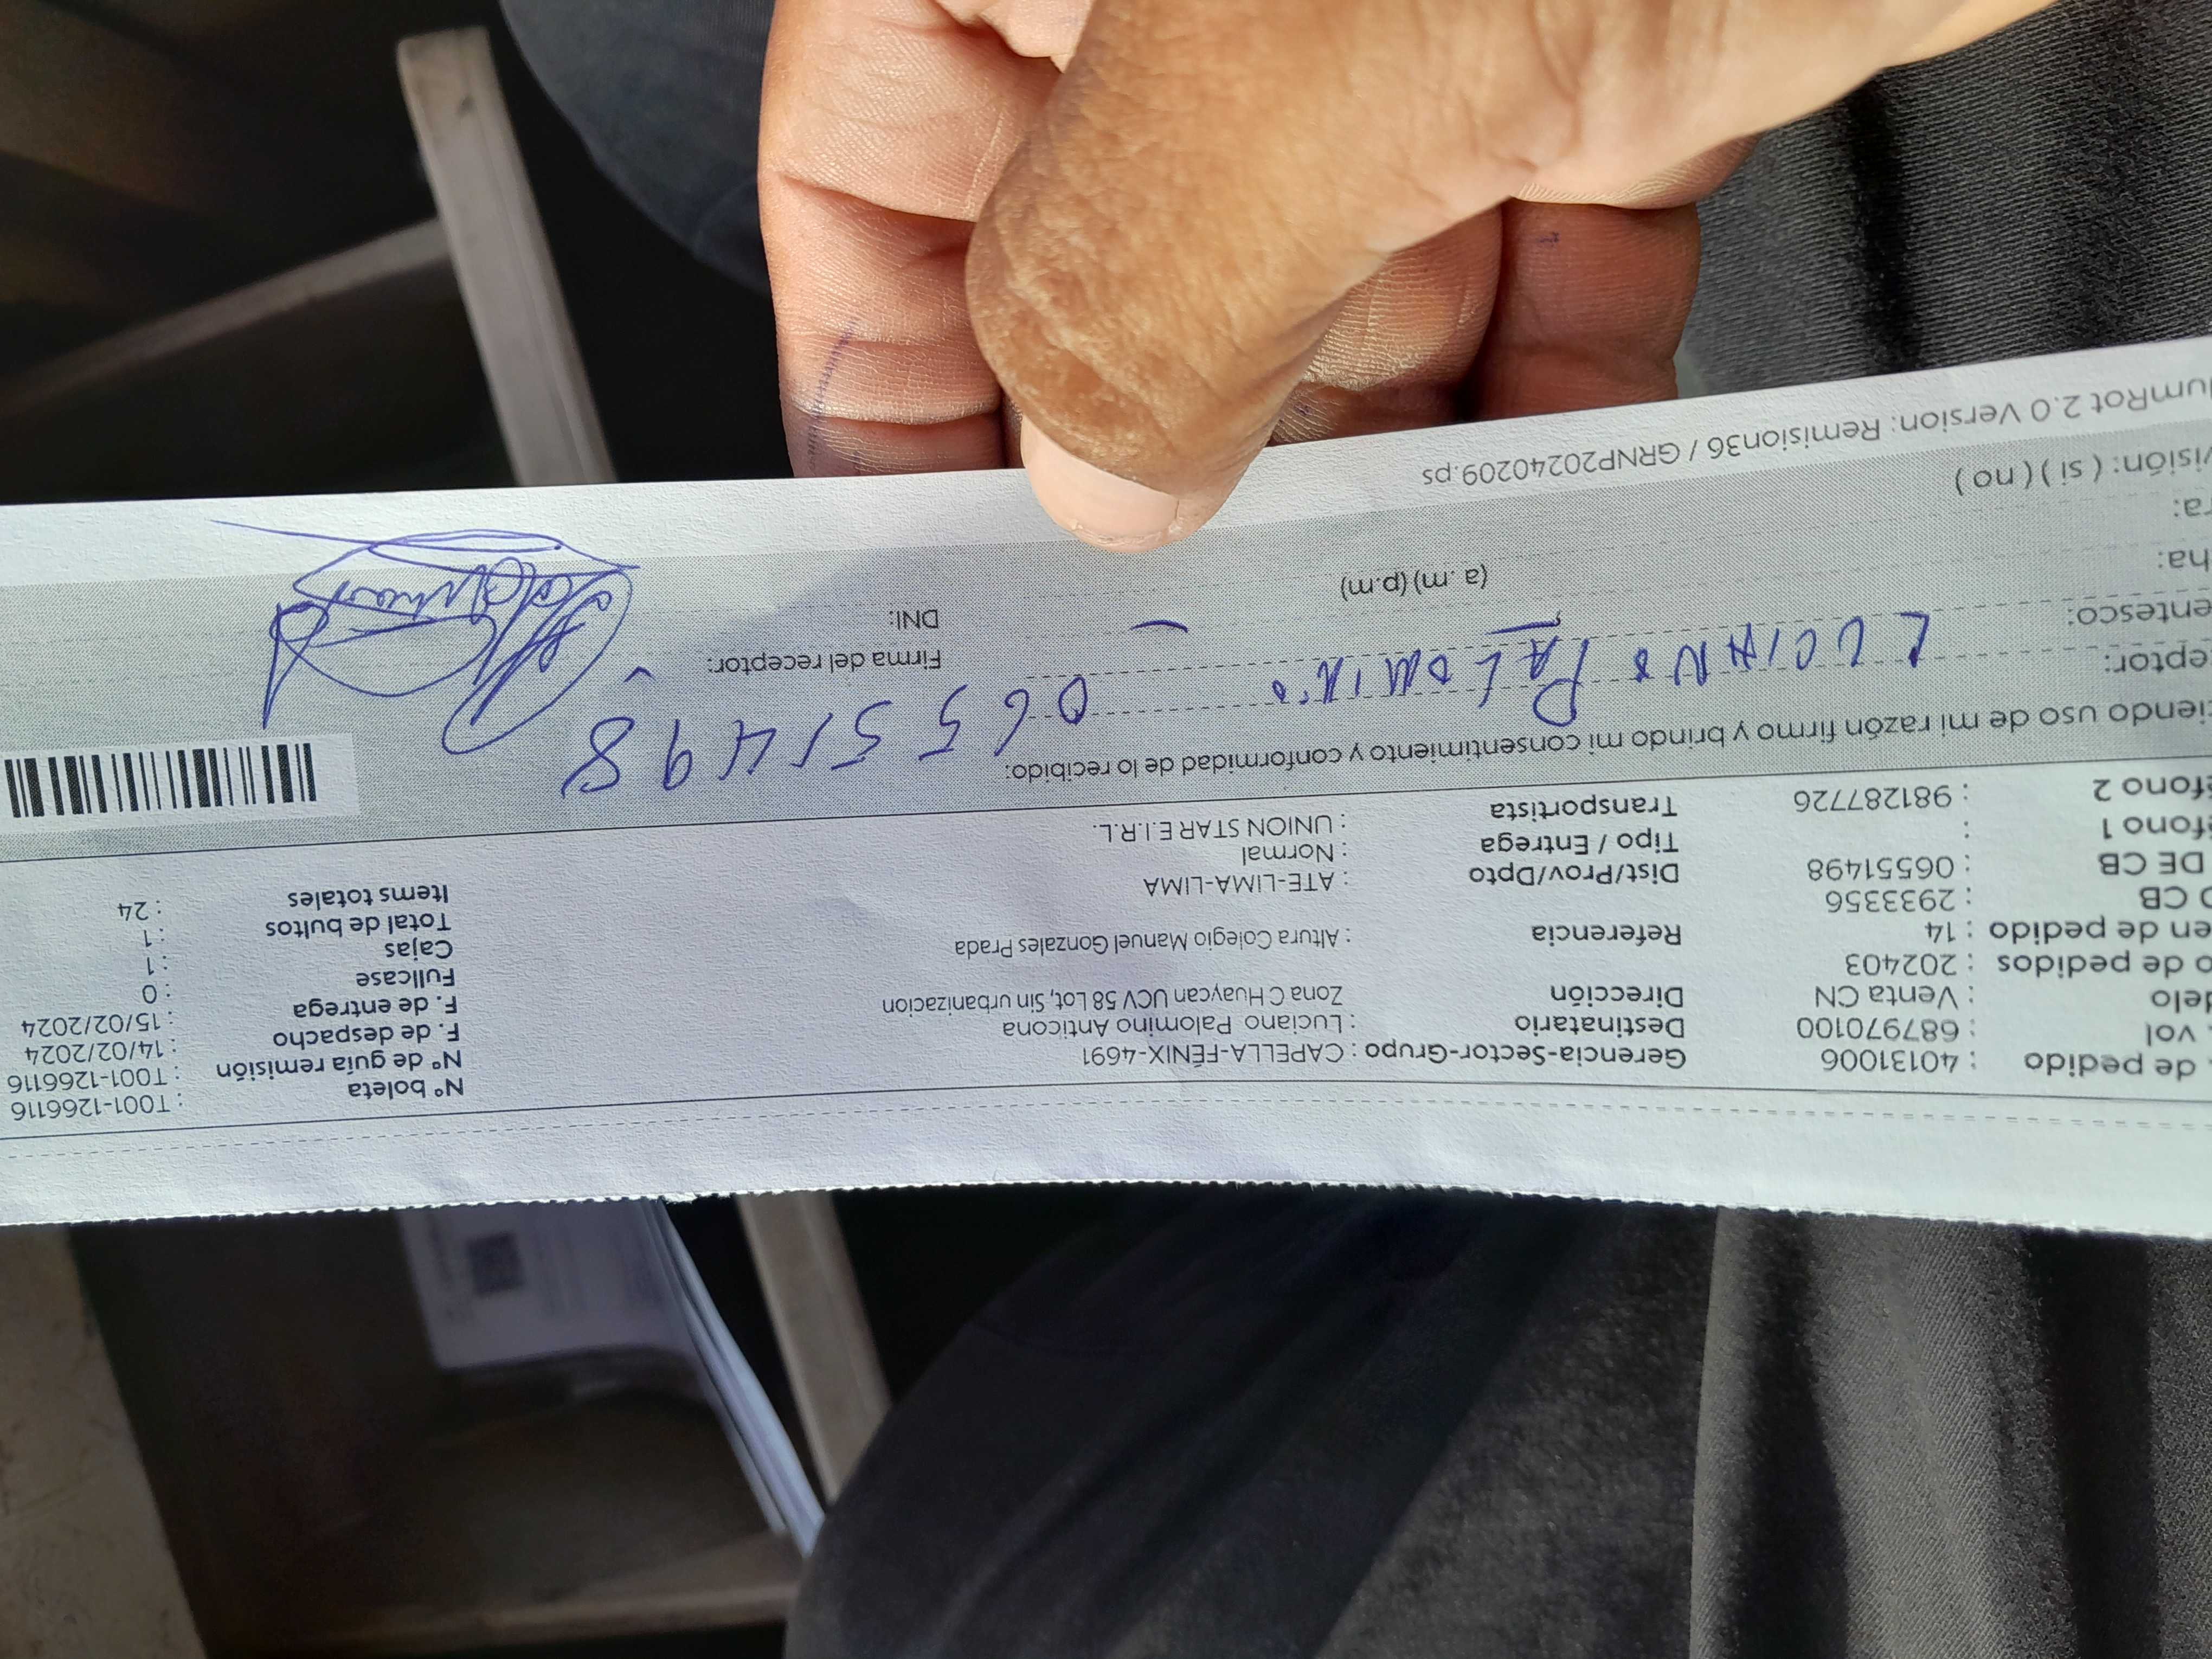 de pedido : 40131006 Gerencia-Sector-Grupo : CAPELLA-FÉNIX-4691 N° boleta : T001-1266116
vol : 687970100 Destinatario : Luciano Palomino Anticona N° de guía remisión : T001-1266116
delo : Venta CN Dirección Zona C Huaycan UCV 58 Lot, Sin urbanizacion F. de despacho : 14/02/2024
o de pedidos : 202403 F. de entrega : 15/02/2024
en de pedido : 14 Referencia : Altura Colegio Manuel Gonzales Prada Fullcase : 0
O CB : 2933356 Cajas : 1
DE CB : 06551498 Dist/Prov/Dpto : ATE-LIMA-LIMA Total de bultos : 1
éfono 1 : Tipo / Entrega : Normal Items totales : 24
éfono 2 : 981287726 Transportista : UNION STAR E.I.R.L.
ciendo uso de mi razón firmo y brindo mi consentimiento y conformidad de lo recibido:
eptor: LUCIANO PALOMINO 06551498 Firma del receptor:
entesco: DNI:
ha:
ra: (a. m) (p.m)
visión: ( si ) ( no )
umRot 2.0 Version: Remision36 / GRNP20240209.ps